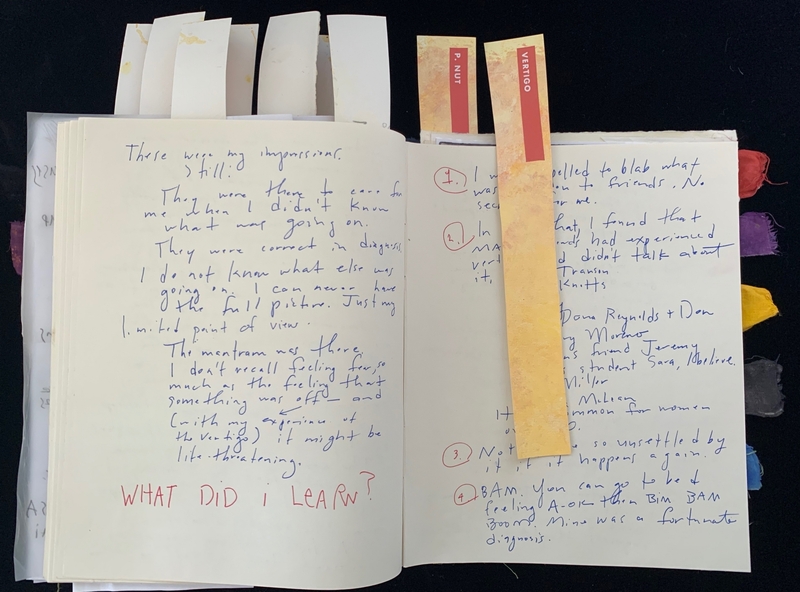 P. NUT
VERTIGO
These were my impressions.
Still:
They were there to care for
me when I didn't know
what was going on.
They were correct in diagnosis
I do not know what else was
going on. I can never have
the full picture. Just my
limited point of view.
The mantram was there
I don't recall feeling fear, so
much as the feeling that
something was off — and
(with my experience of
the vertigo) it might be
life-threatening.
WHAT DID i LEARN?
1. I w pelled to blab what
was on to friends. No
sec or me.
2. In hat, I found that
MA nds had experienced
vert d didn't talk about
it, Transon
Knitts
Dona Reynolds + Don
y Moreno
s friend Jeremy
student Sara, I believe.
Miller
McLean
It mmon for women
ov 0.
3. Not e so unsettled by
it if it happens again.
4. BAM. You can go to bed
feeling A-OK then BIM BAM
BOOM. Mine was a fortunate
diagnosis.